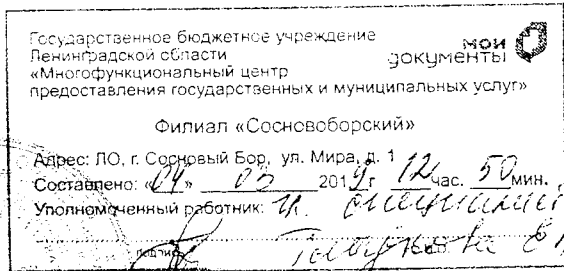 Государственное бюджетное учреждение
Ленинградской области
«Многофункциональный центр
предоставления государственных и муниципальных услуг»
мои
документы
Филиал «Сосновоборский»
Адрес: ЛО, г. Сосновый Бор, ул. Мира, д. 1
Составлено: «04» 03 2019 г 12 час. 50 мин.
Уполномоченный работник:
подпись